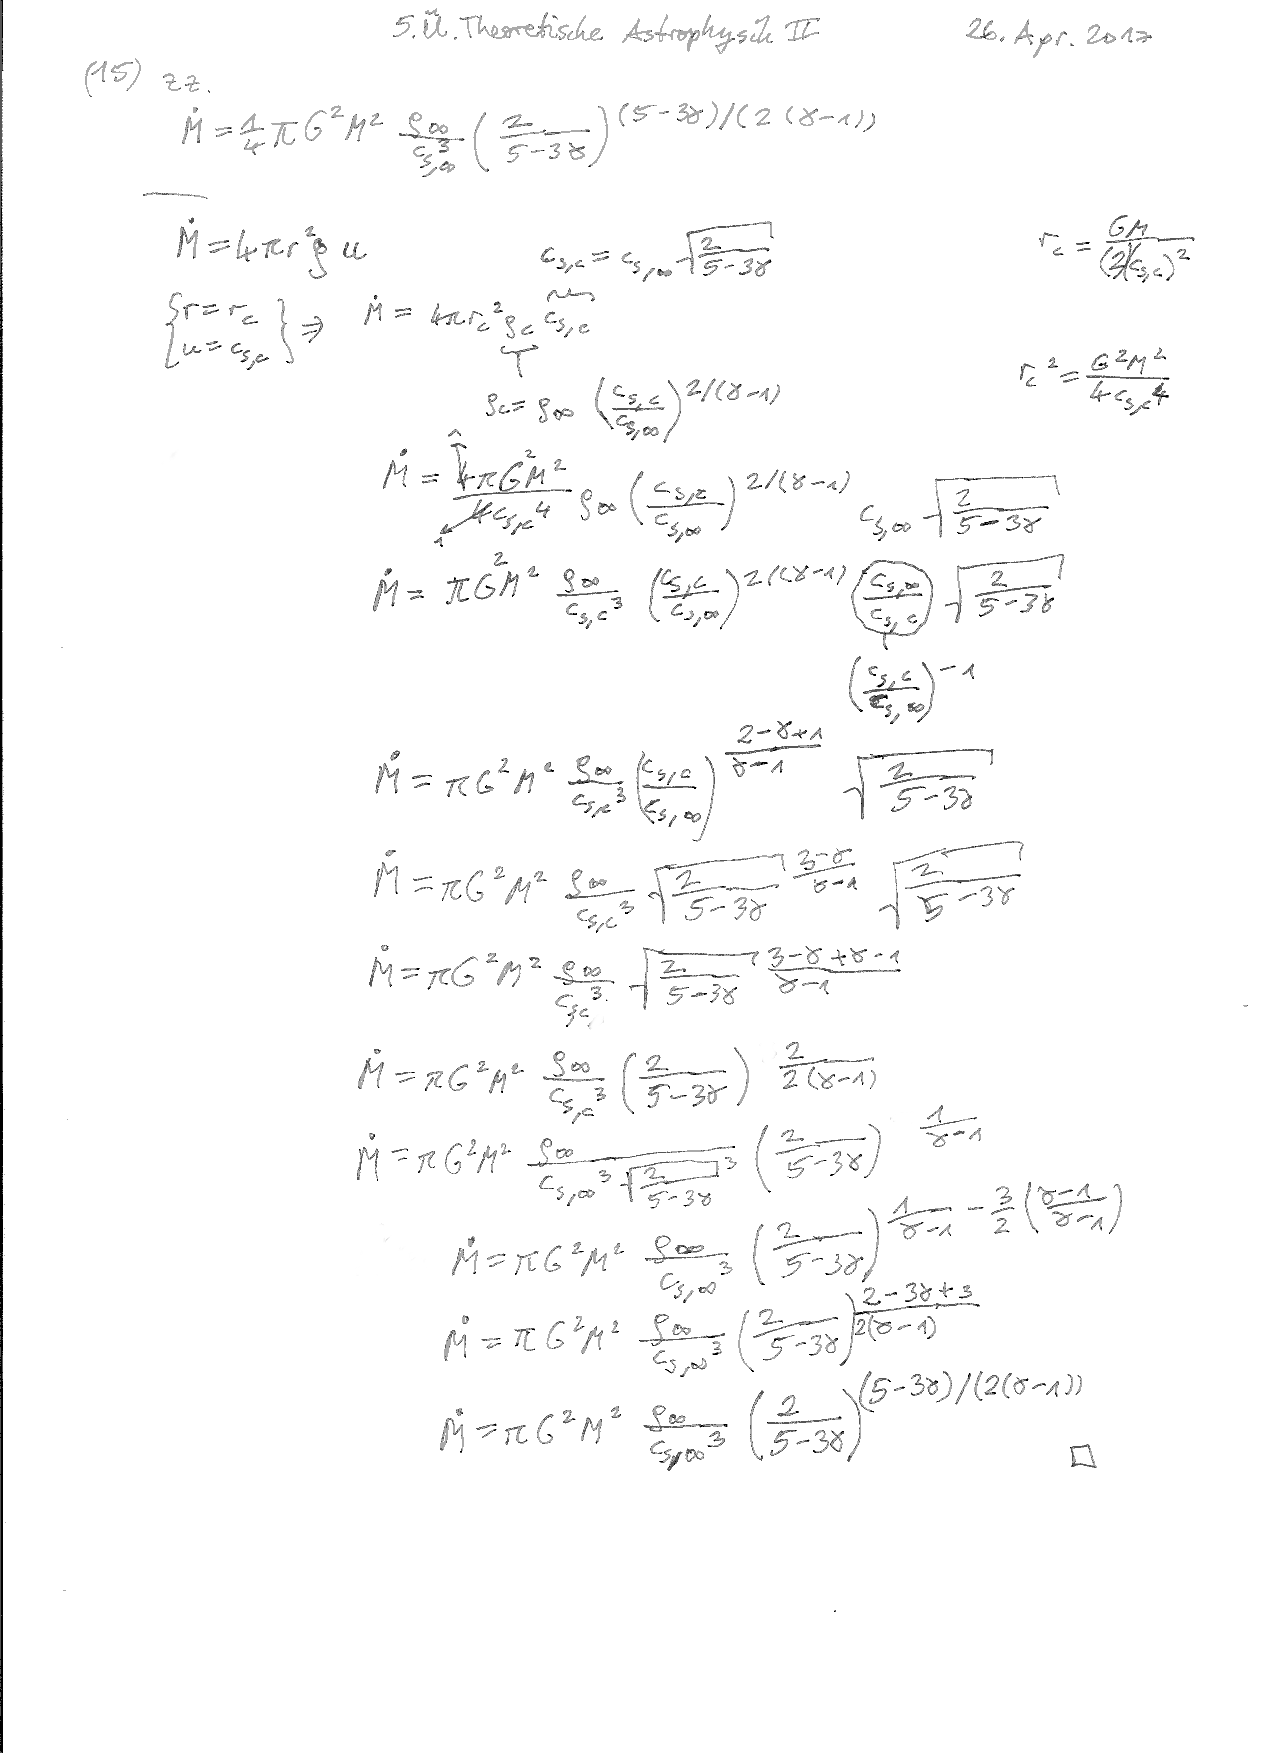 5. Ü. Theoretische Astrophysik II 26. Apr. 2017
(15) zz.
Ṁ = 1/4 π G² M² ρ∞/c_{s,∞}³ (2/(5-3γ))^{(5-3γ)/(2(γ-1))}
Ṁ = 4πr²ρ u c_{s,c} = c_{s,∞} √(2/(5-3γ)) r_c = GM/(2(c_{s,c})²)
{r = r_c u = c_{s,c}} ⇒ Ṁ = 4πr_c² ρ_c c_{s,c} r_c² = G²M²/(4 c_{s,c}⁴)
ρ_c = ρ∞ (c_{s,c}/c_{s,∞})^{2/(γ-1)}
Ṁ = 4πG²M²/(4c_{s,c}⁴) ρ∞ (c_{s,c}/c_{s,∞})^{2/(γ-1)} c_{s,∞} √(2/(5-3γ))
Ṁ = πG²M² ρ∞/c_{s,c}³ (c_{s,c}/c_{s,∞})^{2/(γ-1)} (c_{s,∞}/c_{s,c}) √(2/(5-3γ))
(c_{s,c}/c_{s,∞})^{-1}
Ṁ = πG²M² ρ∞/c_{s,c}³ (c_{s,c}/c_{s,∞})^{(2-γ+1)/(γ-1)} √(2/(5-3γ))
Ṁ = πG²M² ρ∞/c_{s,c}³ √(2/(5-3γ))^{(3-γ)/(γ-1)} √(2/(5-3γ))
Ṁ = πG²M² ρ∞/c_{s,c}³ √(2/(5-3γ))^{(3-γ+γ-1)/(γ-1)}
Ṁ = πG²M² ρ∞/c_{s,c}³ (2/(5-3γ))^{2/(2(γ-1))}
Ṁ = πG²M² ρ∞/(c_{s,∞}³ √(2/(5-3γ))³) (2/(5-3γ))^{1/(γ-1)}
Ṁ = πG²M² ρ∞/c_{s,∞}³ (2/(5-3γ))^{1/(γ-1) - 3/2((γ-1)/(γ-1))}
Ṁ = πG²M² ρ∞/c_{s,∞}³ (2/(5-3γ))^{(2-3γ+3)/(2(γ-1))}
Ṁ = πG²M² ρ∞/c_{s,∞}³ (2/(5-3γ))^{(5-3γ)/(2(γ-1))}
□